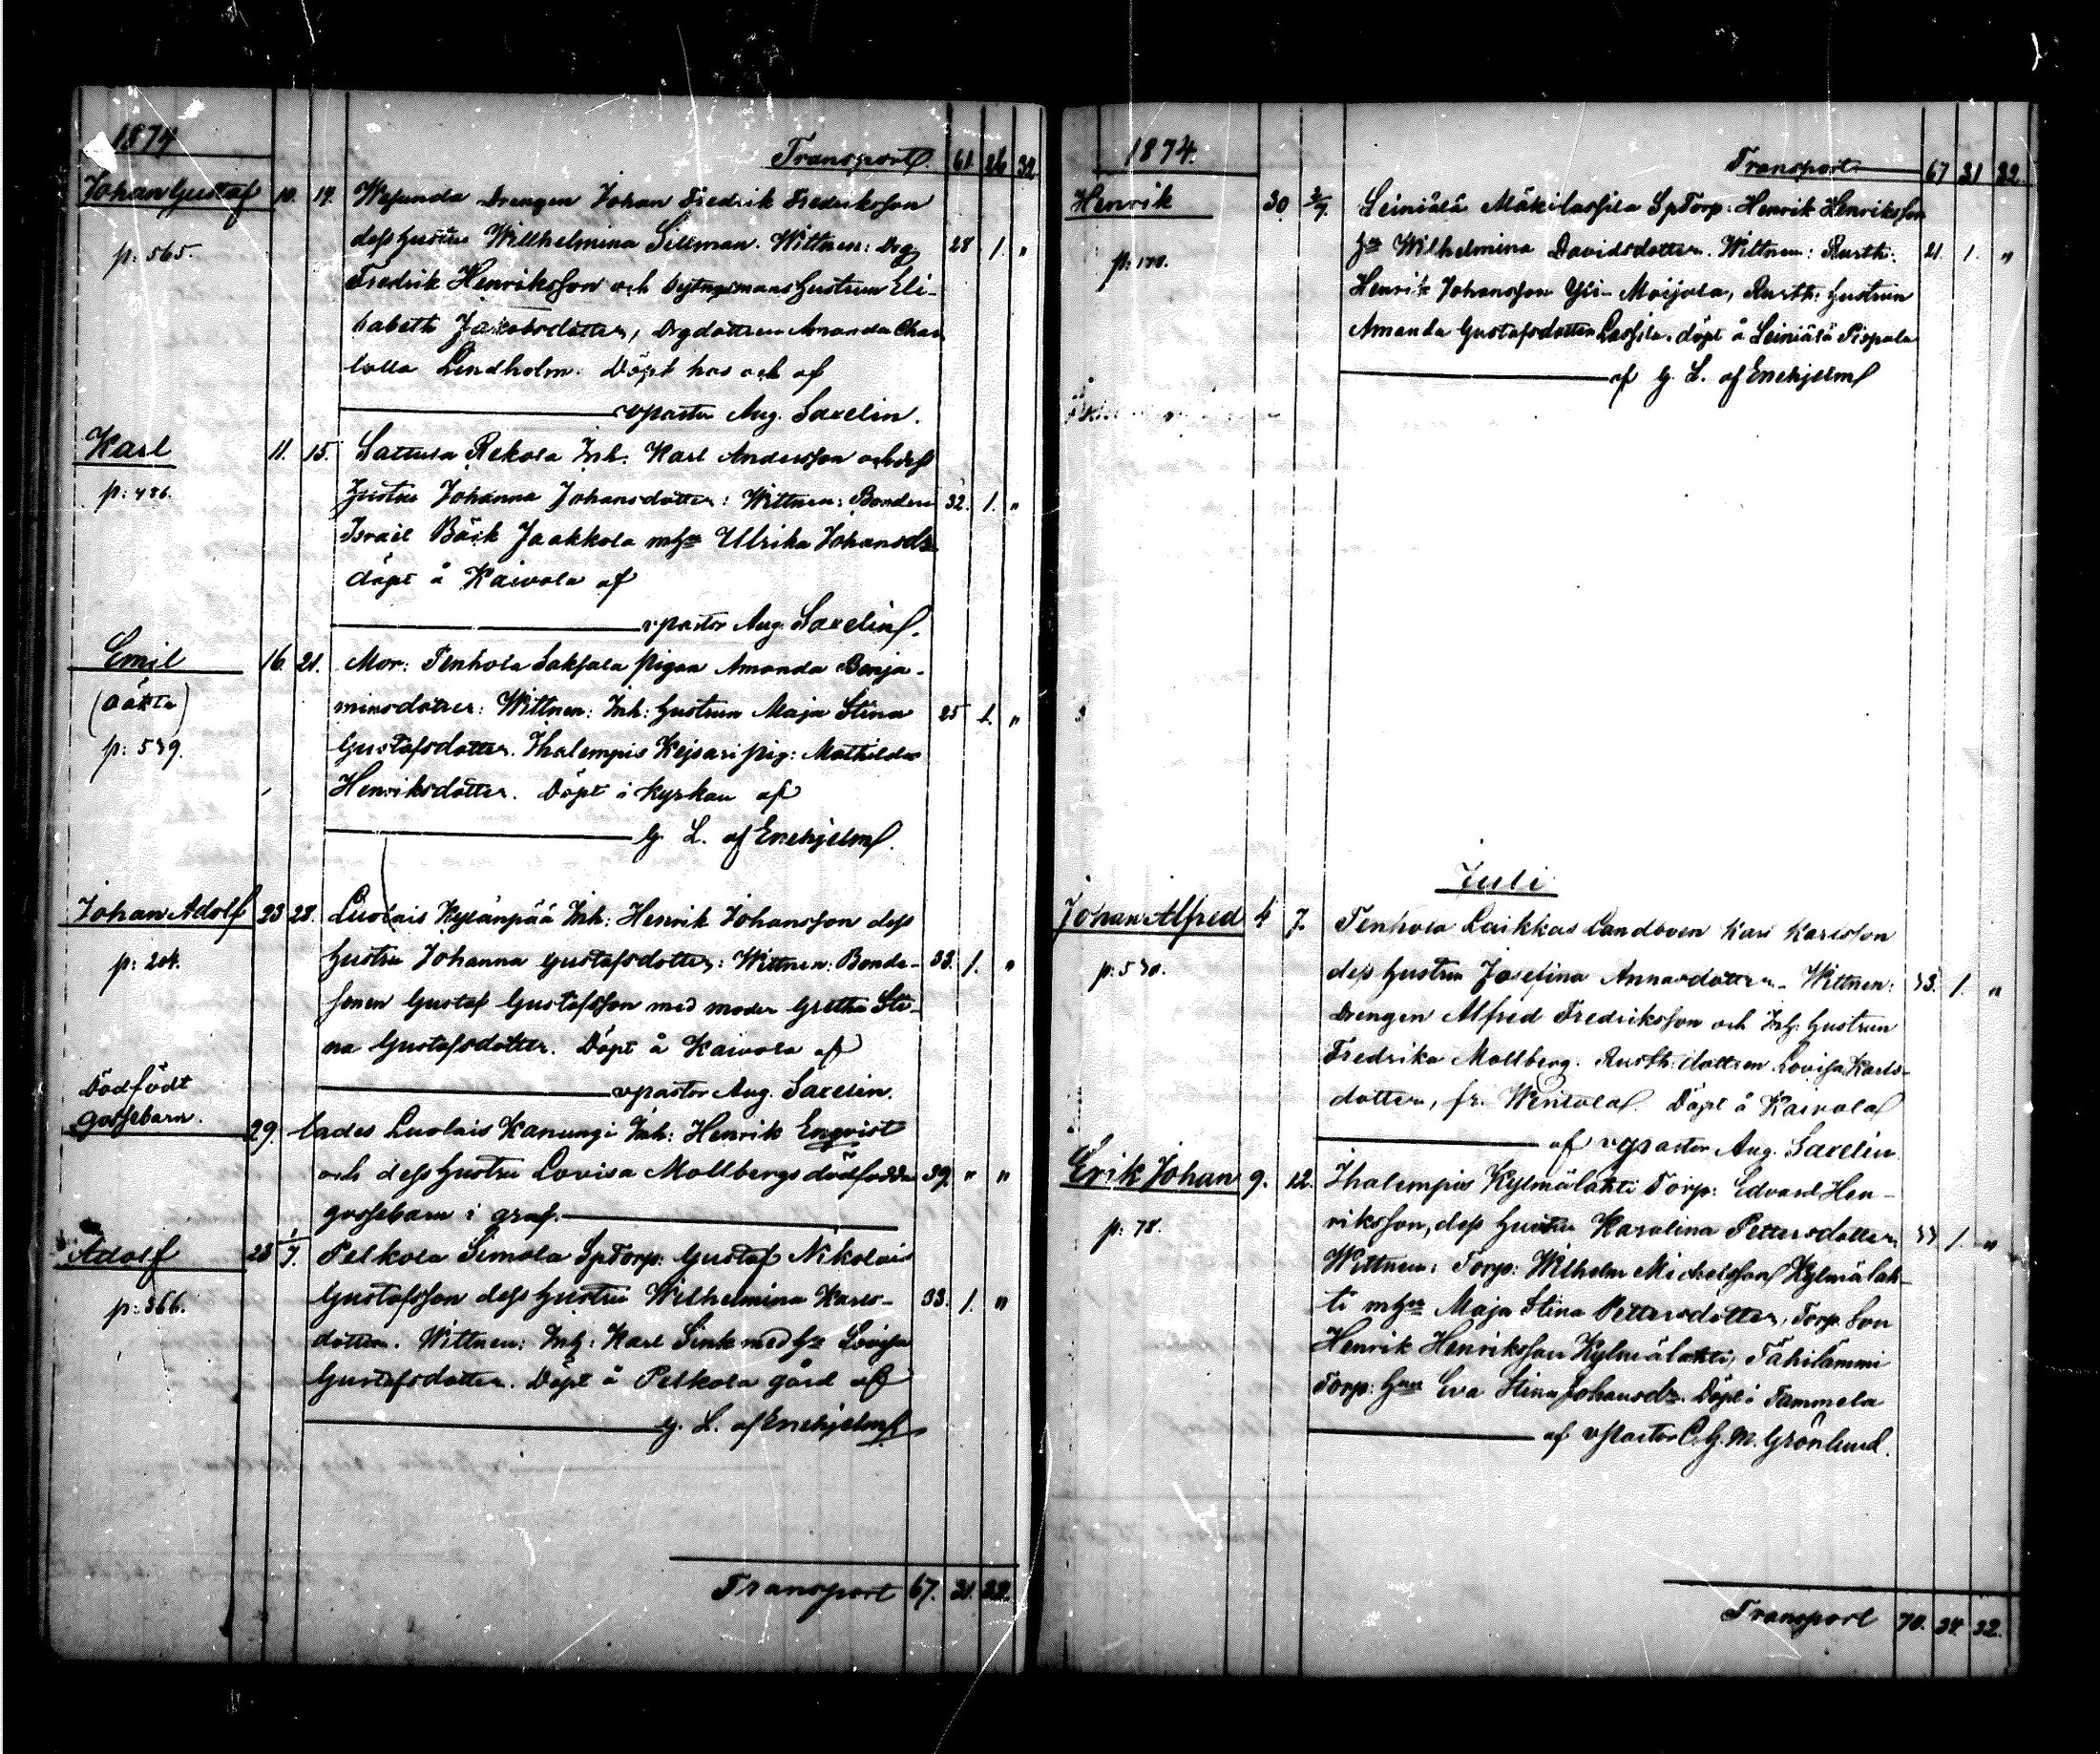 1874
Transport. 61. 26 32
Johan Gustaf 10. 14. Wesunda Drengen Johan Fredrik Fredriksson
p: 565. dess hustru Willhelmina Sillman. Wittnen: Drg 28 1. "
Fredrik Henriksson och hustrun Eli-
sabeth Jakobsdotter, Drgdottren Amanda Char
lotta Lindholm. Döpt hos och af
vpastor Aug. Saxelin.
Karl 11. 15. Sattula Rekola Inh. Karl Andersson och dess
p: 486. hustru Johanna Johansdotter: Wittnen: Bonden 32. 1. "
Israil Bäck Jaakkola m hu Ulrika Johansdr
döpt å Kaivola af
vpastor Aug. Saxelin.
Emil 16. 21. Mor: Tenhola Saksala pigan Amanda Benja-
(oäkta) minsdotter: Wittnen: Inh: hustrun Maja Stina 25 1. "
p: 539. Gustafsdotter. Ihalempis Kejsari pig: Mathilda
Henriksdotter. Döpt i kyrkan af
G. L. af Enehjelm.
Johan Adolf 23 28. Luolais Kylänpää Inh: Henrik Johansson dess
p: 204. hustru Johanna Gustafsdotter: Wittnen: Bonde- 33. 1. "
sonen Gustaf Gustafsson med moder Gretha Sti-
na Gustafsdotter. Döpt å Kaivola af
vpastor Aug. Saxelin.
Dödfödt
gossebarn. 29. lades Luolais Kanungi Inh: Henrik Enqvist
och dess hustru Lovisa Mollbergs dödfödda 39. " "
gossebarn i graf.
Adolf 28 1/7. Pelkola Simola SpTorp: Gustaf Nikolai
p: 366. Gustafsson dess hustru Wilhelmina Karls- 33. 1. "
dotter. Wittnen: Inh: Karl Sink med hu Lovisa
Gustafsdotter. Döpt å Pelkola gård af
G. L. af Enehjelm.
Transport 67. 31. 32.
1874.
Transport 67 31 32.
Henrik 30 2/7. Leiniälä Mäkilassila SpTorp: Henrik Henriksson
p: 170. hu Wilhelmina Davidsdotter. Wittnen: Rusth: 21. 1. "
Henrik Johansson Yli-Maijala, Rusth: hustrun
Amanda Gustafsdotter Lassila. döpt å Leiniälä Pispala
af G. L. af Enehjelm
Juli
Johan Alfred 4 7. Tenhola Luikkas Landboen Karl Karlsson
p: 530. dess hustru Josefina Annasdotter. Wittnen: 33. 1. "
Drengen Alfred Fredriksson och Inh: hustrun
Fredrika Mollberg. Rusth: dottren Lovisa Karls-
dotter, fr. Döpt å Kaivola
af vpastor Aug. Saxelin
Erik Johan 9. 12. Ihalempis Kylmälahti Torp: Edvard Hen-
p: 78. riksson, dess hustru Karolina Pettersdotter 33 1. "
Wittnen: Torp: Wilhelm Michelsson Kylmälah-
ti m hu Maja Stina Pettersdotter, Torp. Son
Henrik Henriksson Kylmälahti, Tähilammi
Torp: hun Eva Stina Johansdr. Döpt i Tammela
af vpastor C. G. M. Grönlund.
Transport 70. 34. 32.